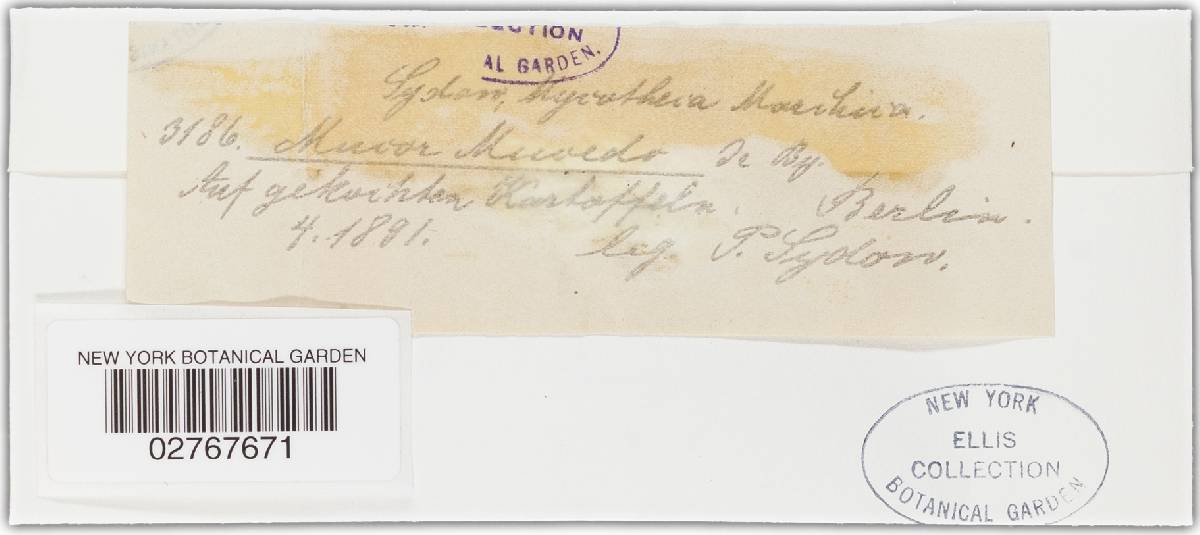 COLLECTION
AL GARDEN.
Sydow, Mycotheca Marchica.
3186. Mucor Mucedo de By.
Auf gekochten Kartoffeln. Berlin.
4.1891. leg. P. Sydow.
NEW YORK BOTANICAL GARDEN
02767671
NEW YORK
ELLIS
COLLECTION
BOTANICAL GARDEN